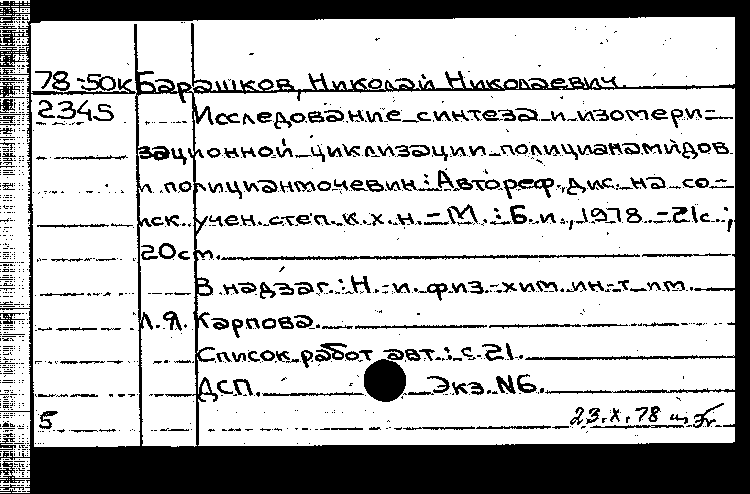 78-50к Барашков, Николай Николаевич.
2345 Исследование синтеза и изомери=
зационной циклизации полицианамидов
и полициан­мочевин: Автореф. дис. на со-
иск. учен. степ. к.х.н. - М.: Б.и., 1978. - 21с.;
20см.
В надзаг.: Н.-и. физ.-хим. ин-т им.
Л.Я. Карпова.
Список работ авт.: с. 21.
ДСП. Экз. N6.
5 23.X.78